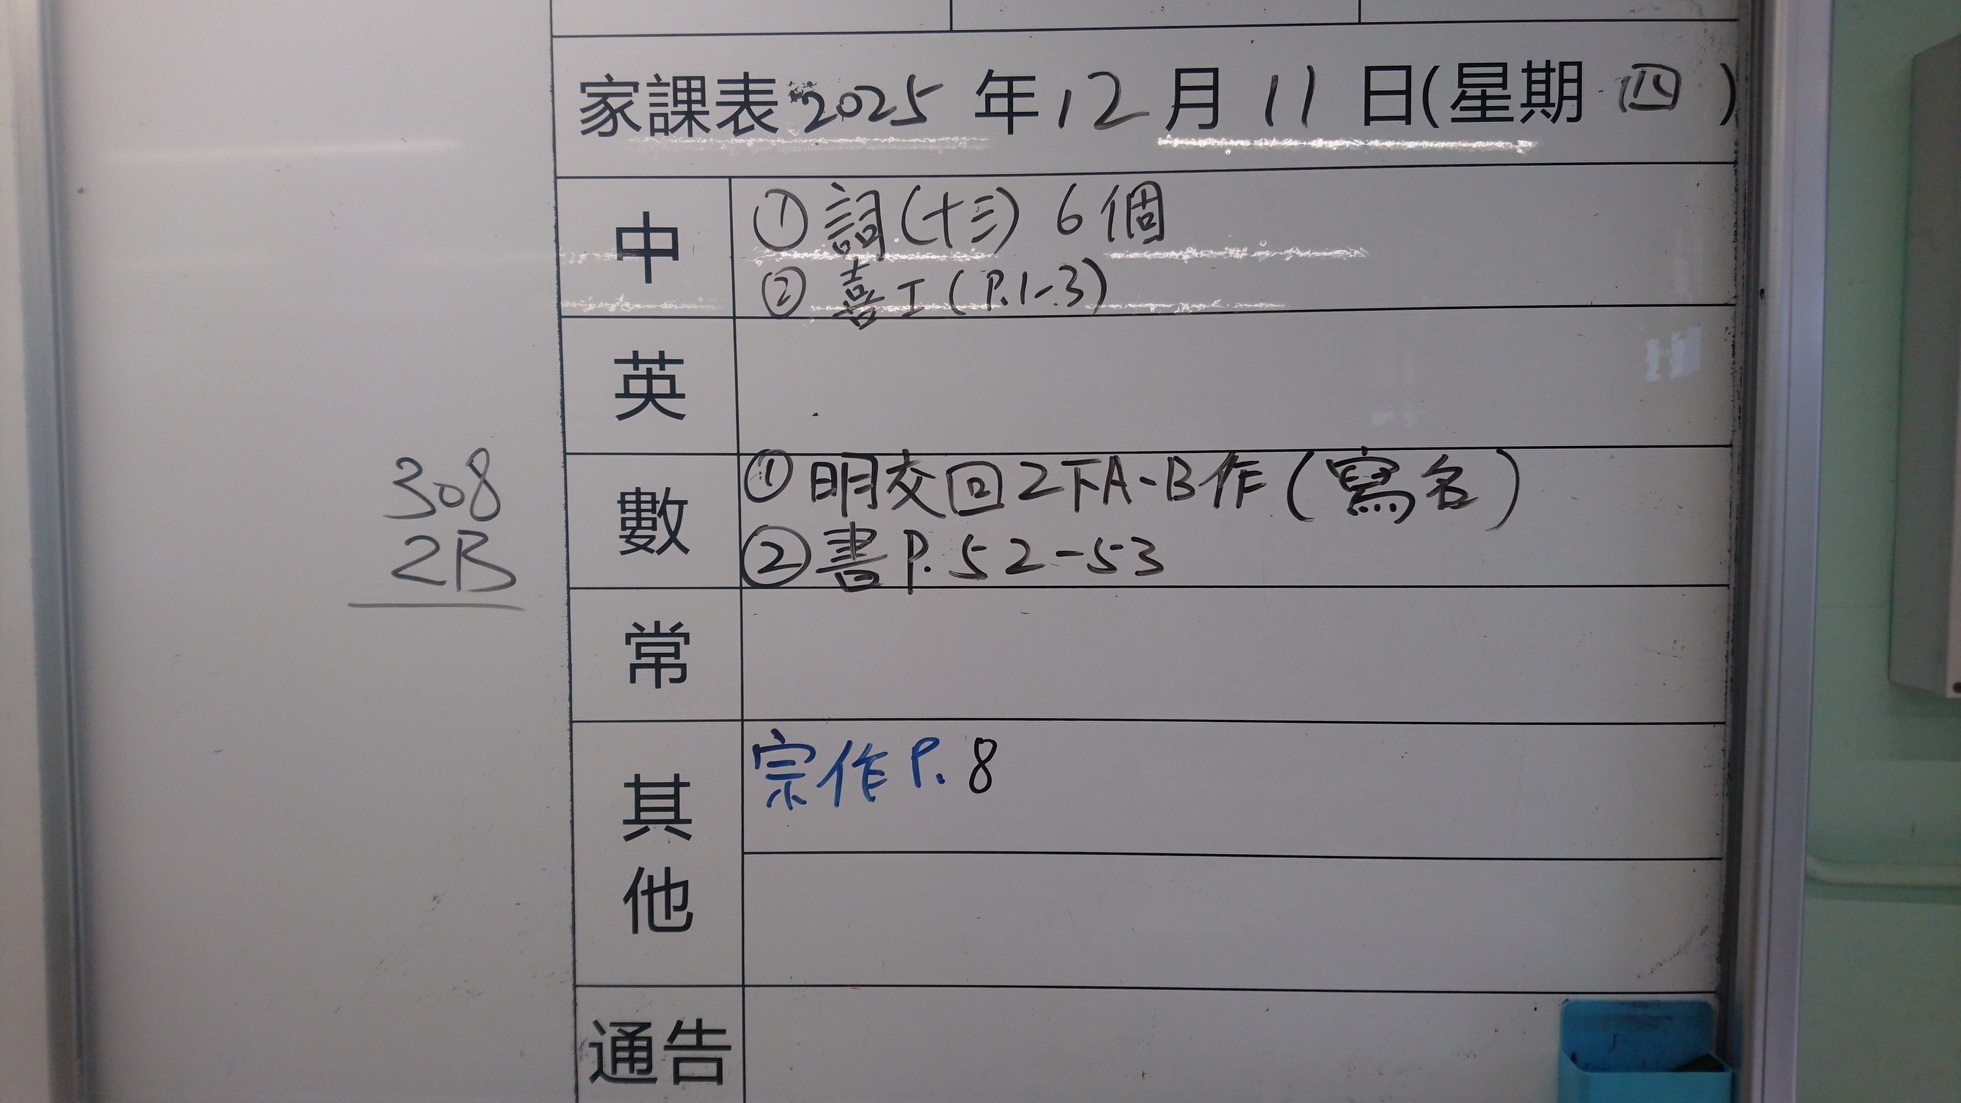 家課表 2025 年 12 月 11 日(星期 四 )
中
① 詞(十三) 6個
② 喜工(P.1-3)
英
308
2B
數
① 明交回2下A-B作(寫名)
② 書P.52-53
常
其他
宗作P.8
通告